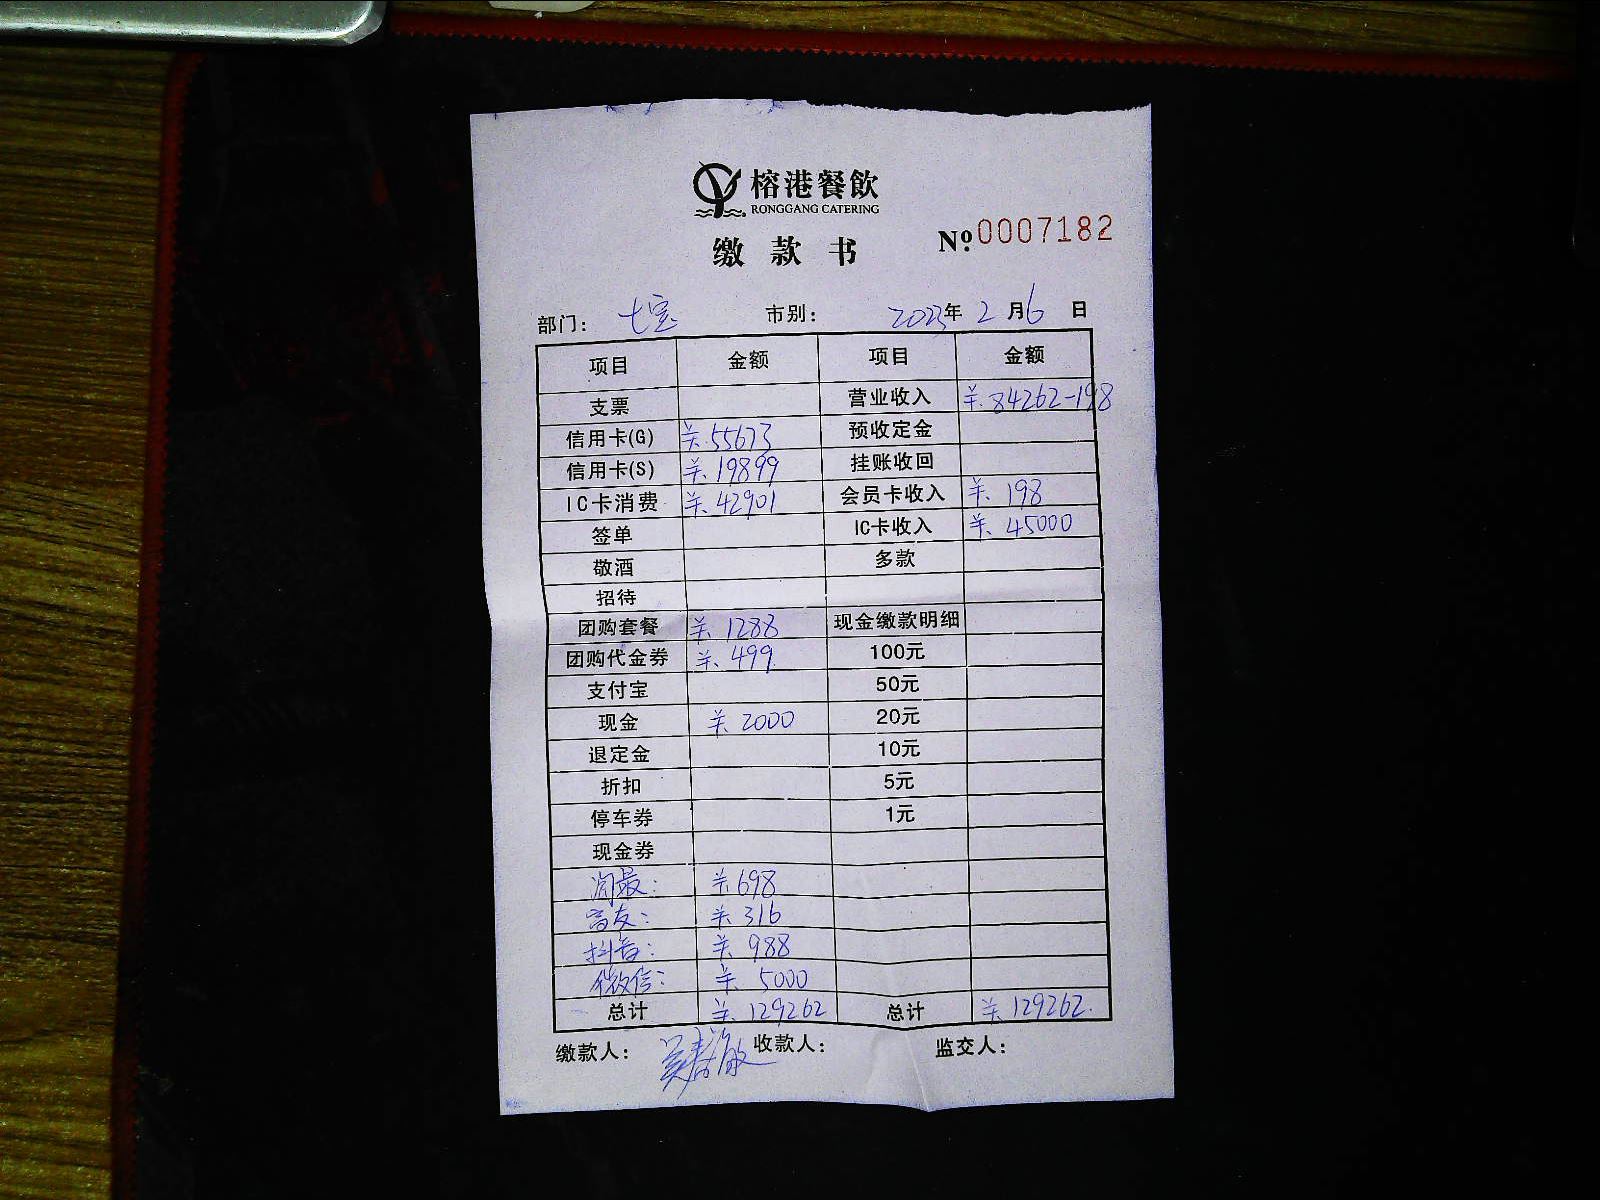 榕港餐飲
RONGGANG CATERING
缴款书 №0007182
部门: 七宝 市别: 2023年 2月6日
项目 金额 项目 金额
支票 营业收入 ¥.84262-198
信用卡(G) ¥.55673 预收定金
信用卡(S) ¥.19899 挂账收回
IC卡消费 ¥.42901 会员卡收入 ¥.198
签单 IC卡收入 ¥.45000
敬酒 多款
招待
团购套餐 ¥.1288 现金缴款明细
团购代金券 ¥.499. 100元
支付宝 50元
现金 ¥.2000 20元
退定金 10元
折扣 5元
停车券 1元
现金券
¥.698
¥.316
抖音: ¥.988
微信: ¥.5000
总计 ¥.129262 总计 ¥.129262.
缴款人: 收款人: 监交人: